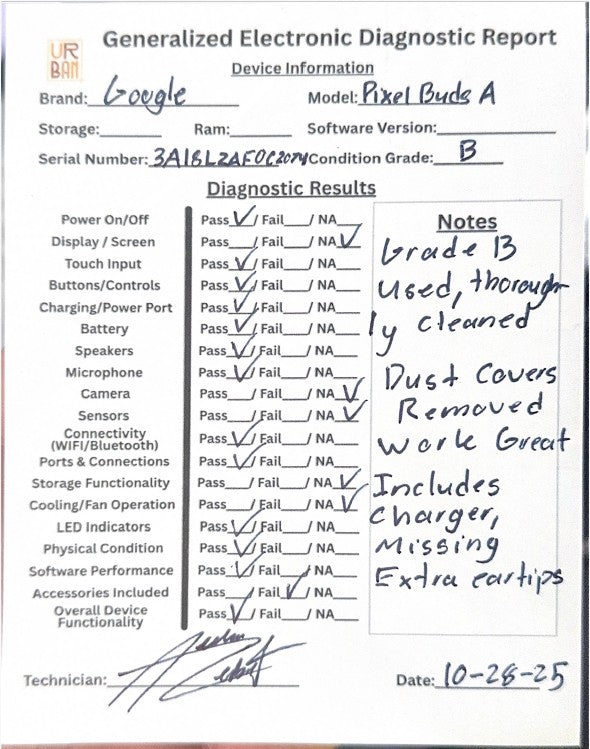 UR
BAN
Generalized Electronic Diagnostic Report
Device Information
Brand: Google Model: Pixel Buds A
Storage:______ Ram:______ Software Version:______
Serial Number: Condition Grade: B
Diagnostic Results
Power On/Off Pass ✓/ Fail___/ NA___
Display / Screen Pass___/ Fail___/ NA ✓
Touch Input Pass ✓/ Fail___/ NA___
Buttons/Controls Pass ✓/ Fail___/ NA___
Charging/Power Port Pass ✓/ Fail___/ NA___
Battery Pass ✓/ Fail___/ NA___
Speakers Pass ✓/ Fail___/ NA___
Microphone Pass ✓/ Fail___/ NA___
Camera Pass___/ Fail___/ NA ✓
Sensors Pass___/ Fail___/ NA ✓
Connectivity
(WIFI/Bluetooth) Pass ✓/ Fail___/ NA___
Ports & Connections Pass ✓/ Fail___/ NA___
Storage Functionality Pass___/ Fail___/ NA ✓
Cooling/Fan Operation Pass___/ Fail___/ NA ✓
LED Indicators Pass ✓/ Fail___/ NA___
Physical Condition Pass ✓/ Fail___/ NA___
Software Performance Pass ✓/ Fail___/ NA___
Accessories Included Pass___/ Fail ✓/ NA___
Overall Device
Functionality Pass ✓/ Fail___/ NA___
Notes
Grade B
Used, thorough-
ly cleaned
Dust Covers
Removed
Work Great
Includes
Charger,
Missing
Extra eartips
Technician: Date: 10-28-25